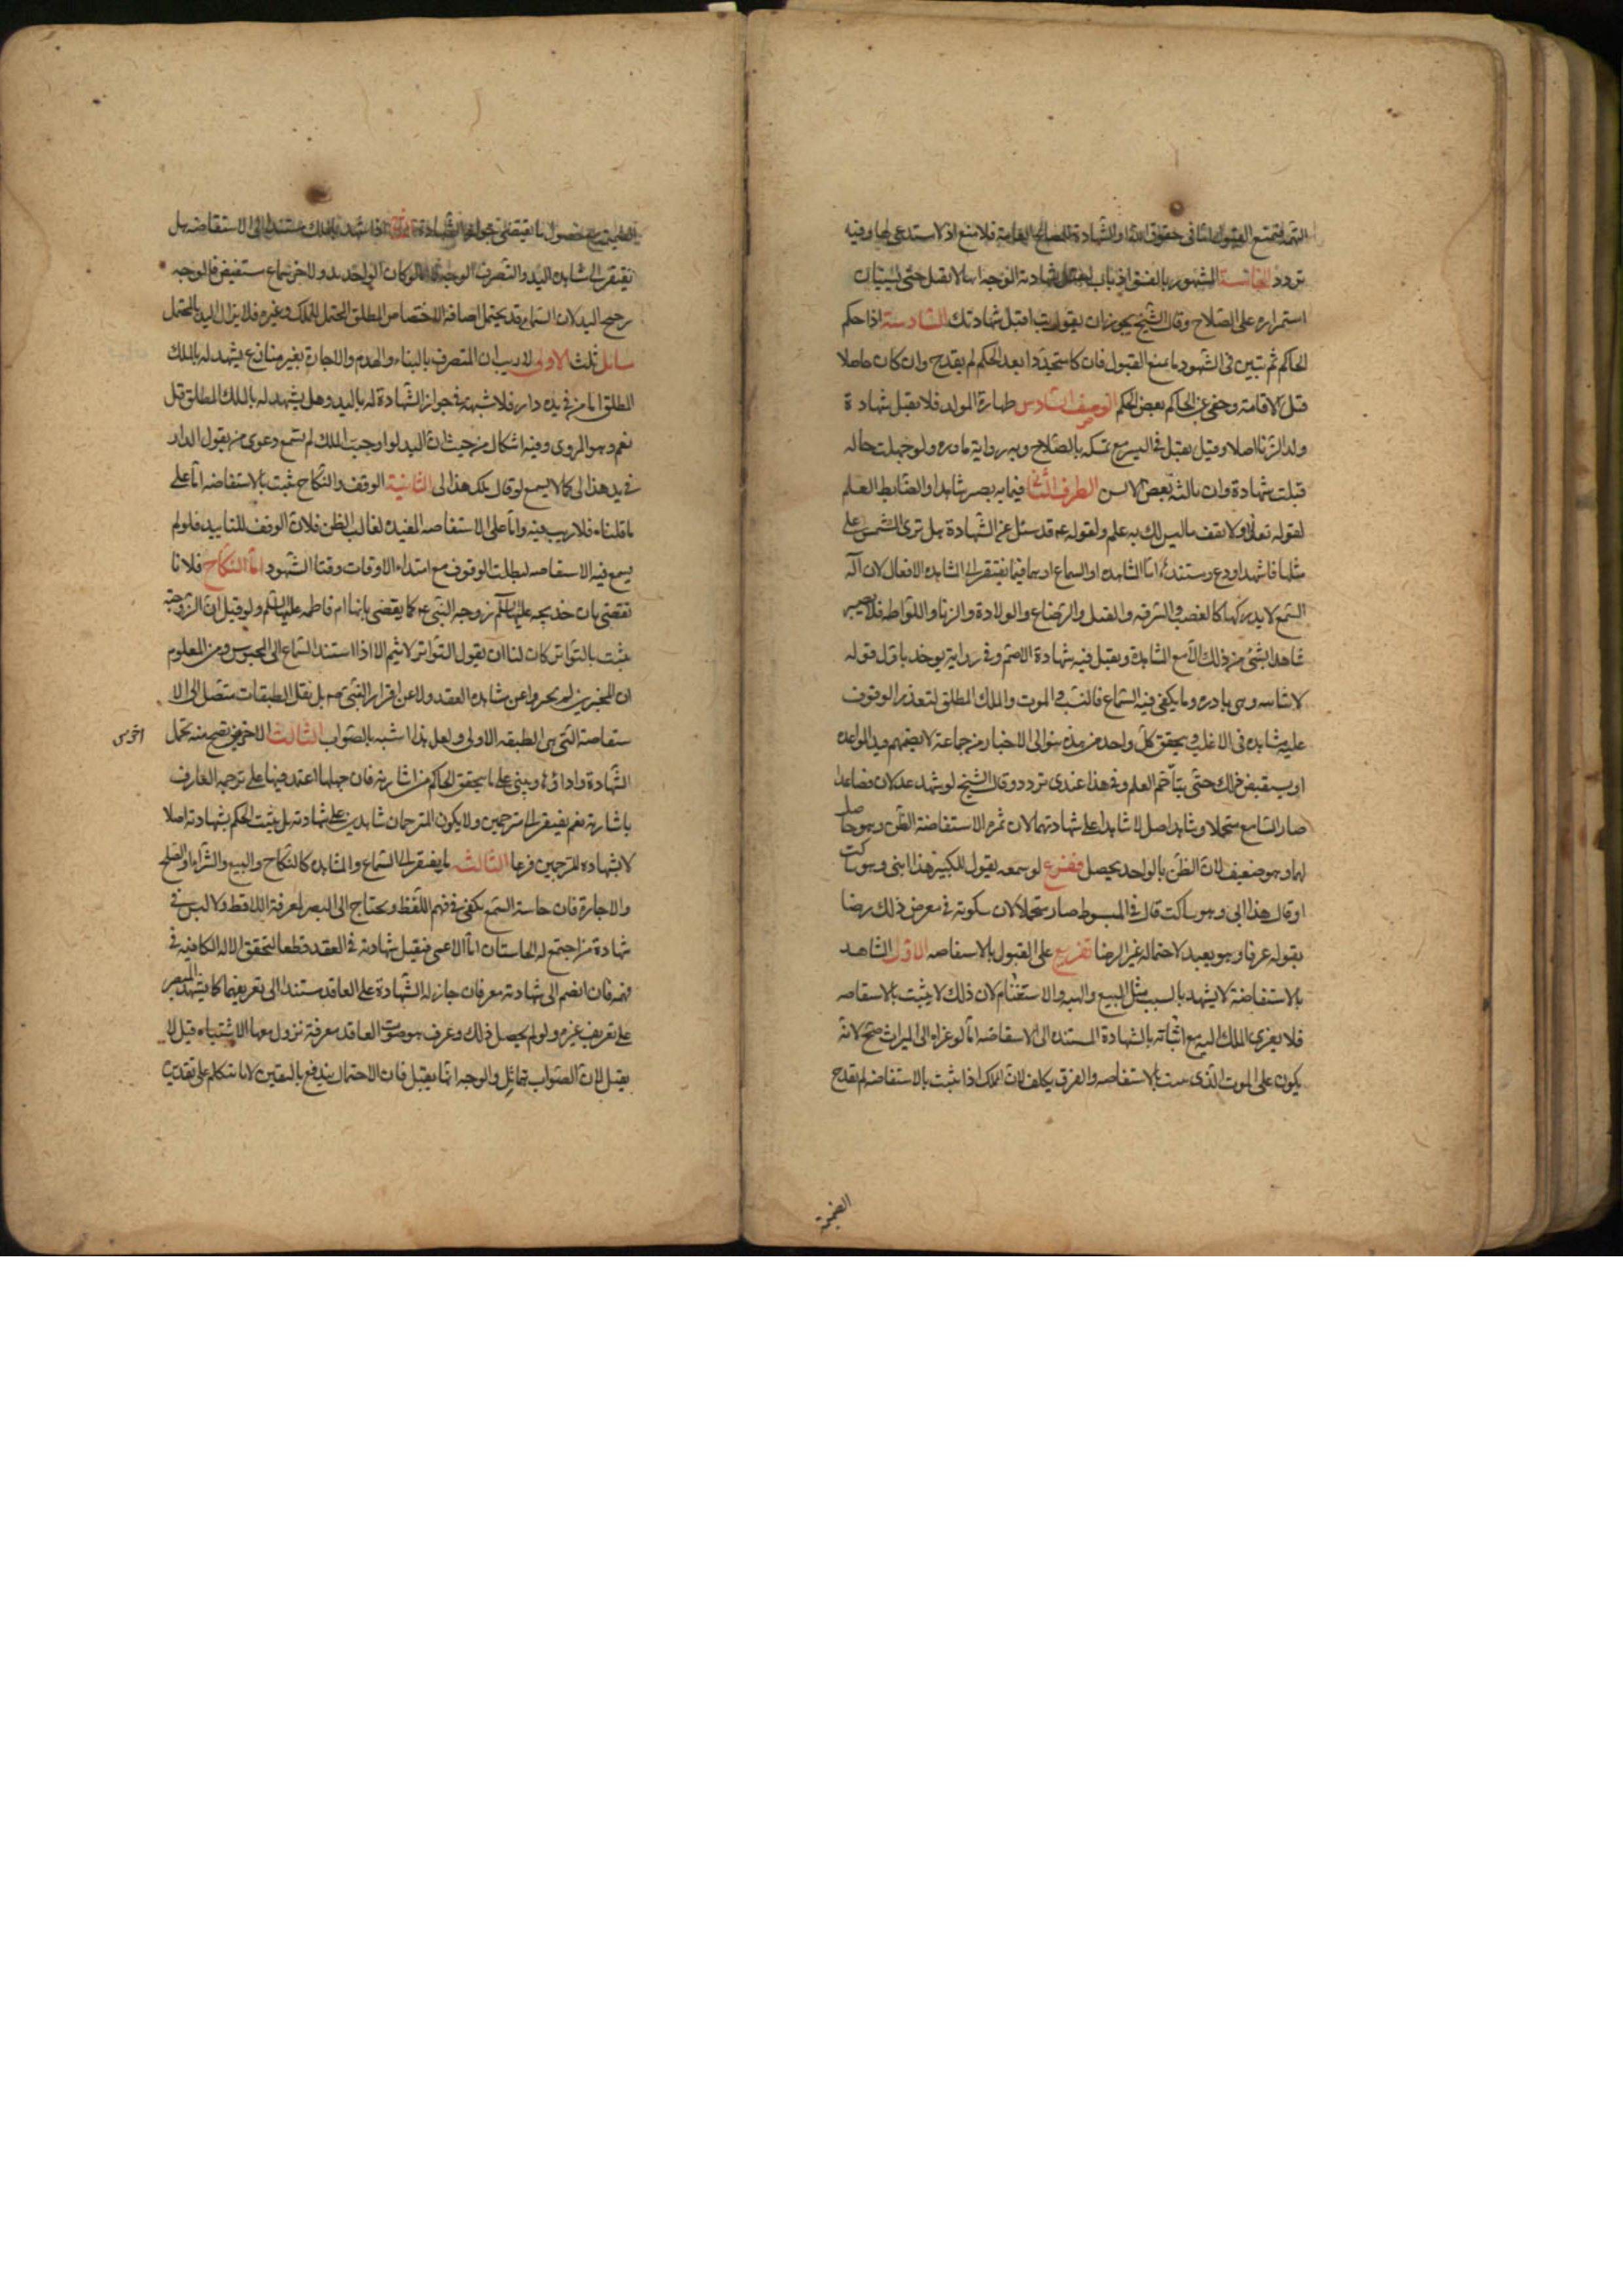 التهمة فتمنع القبول اما فى حقوق الله او الشهادة للمصالح العامة فلا تمنع اذ لا مستدعى لها وفيه
تردد الخامسة المشهور بالفسق اذا تاب لتقبل شهادته الوجه انها لا تقبل حتى يستبان
استمراره على الصلاح وقال الشيخ يجوز ان يقول تب اقبل شهادتك السادسة اذا حكم
الحاكم ثم تبين فى الشهود ما يمنع القبول فان كان متجددا بعد الحكم لم يقدح وان كان حاصلا
قبل الاقامة وخفى عن الحاكم نقض الحكم الوصف السادس طهارة المولد فلا تقبل شهادة
ولد الزنا اصلا وقيل يقبل فى اليسير مع تمسكه بالصلاح وبه رواية نادرة ولو جهلت حاله
قبلت شهادة وان نالته بعض الالسن الطرف الثانى فيما به يصير شاهدا والضابط العلم
لقوله تعالى ولا تقف ما ليس لك به علم ولقوله ع وقد سئل عن الشهادة هل ترى الشمس على
مثلها فاشهد او دع ومستندها اما المشاهدة او السماع او هما فيما يفتقر الى المشاهدة الافعال لان آلة
السمع لا يدركها كالغصب والسرقة والقتل والرضاع والولادة والزنا واللواطه فلا يصير
شاهدا بشئ من ذلك الا مع المشاهدة ويقبل فيه شهادة الاصم وفى رواية يوخذ باول قوله
لا بثانيه وهى نادرة وما يكفى فيه السماع فالنسب والموت والملك المطلق لتعذر الوقوف
عليه مشاهدة فى الاغلب ويتحقق كل واحد من هذه بتوالى الاخبار من جماعة لا يضمهم قيد المواعدة
او يستفيض ذلك حتى يتاخم العلم وفى هذا عندى تردد وقال الشيخ لو شهد عدلان فصاعدا
صار السامع متحملا وشاهد اصل لا شاهدا على شهادتهما لان ثمرة الاستفاضة الظن وهو حاصل
بهما وهو ضعيف لان الظن بالواحد يحصل ففرع لو سمعه يقول للكبير هذا ابنى وهو ساكت
او قال هذا ابى وهو ساكت قال فى المبسوط صار متحملا لان سكوته فى معرض ذلك رضا
بقوله عرفا وهو بعيد لاحتماله غير الرضا تفريع على القبول بالاستفاضه الاول الشاهد
بالاستفاضة لا يشهد بالسبب مثل البيع والهبة والاستغنام لان ذلك لا يثبت بالاستفاضه
فلا يعزى الملك اليه مع اثباته بالشهادة المستنده الى الاستفاضه اما لو عزاه الى الميراث صح لانه
يكون على الموت الذى يثبت بالاستفاضه والفرق تكلف لان الملك اذا ثبت بالاستفاضه لم تقدح
الضميمة
الضميمة مع حصول ما يقتضى جواز الشهادة الثانى اذا شهد بالملك مستندا الى الاستفاضه هل
يفتقر الى مشاهدة اليد والتصرف الوجه لا اما لو كان الواحد يد والاخر سماع مستفيض فالوجه
ترجيح اليد لان السماع قد يحتمل اضافة الاختصاص المطلق المحتمل للملك وغيره فلا يزال اليد بالمحتمل
مسائل ثلث الاولى لا ريب ان المتصرف بالبناء والهدم والاجارة بغير منازع يشهد له بالملك
المطلق اما من فى يده دار فلا شبهة فى جواز الشهادة له باليد وهل يشهد له بالملك المطلق قيل
نعم وهو المروى وفيه اشكال من حيث ان اليد لو اوجبت الملك لم تسمع دعوى من يقول الدار
فى يد هذا لى كما لا يسمع لو قال ملك هذا لى الثانية الوقف والنكاح يثبت بالاستفاضه اما على
ما قلناه فلا ريب فيه واما على الاستفاضه المفيده لغالب الظن فلان الوقف للتابيد فلو لم
يسمع فيه الاستفاضه لبطلت الوقوف مع امتداد الاوقات وفناء الشهود اما النكاح فلانا
نقضى بان خديجه عليها السلم زوجة النبى ع كما يقضى بانها ام فاطمه عليها السلم ولو قيل ان الزوجية
يثبت بالتواتر كان لنا ان نقول التواتر لا يثمر الا اذا استند السماع الى المحسوس ومن المعلوم
ان المخبرين لم يخبروا عن مشاهدة العقد ولا عن اقرار النبى ع بل نقل الطبقات متصل الى الا
ستفاضة التى هى الطبقه الاولى ولعل هذا اشبه بالصواب الثالث الاخرس يصح منه تحمل
اخرس
الشهادة واداؤها ويبنى على ما يتحقق الحاكم من اشارته فان جهلها اعتمد فيها على ترجمة العارف
باشارته نعم يفتقر الى مترجمين ولا يكون المترجمان شاهدين على شهادته بل يثبت الحكم بشهادته اصلا
لا بشهادة المترجمين فرعا الثالثه ما يفتقر الى السماع والمشاهده كالنكاح والبيع والشراء والصلح
والاجارة فان حاسة السمع يكفى فى فهم اللفظ ويحتاج الى البصر لمعرفة اللافظ ولا لبس فى
شهادة من اجتمع له الحاستان اما الاعمى فتقبل شهادته فى العقد قطعا لتحقق الالة الكافية فى
فهمه فان انضم الى شهادته معرفان جاز له الشهادة على العاقد مستندا الى تعريفهما كما يشهد المبصر
على تعريف غيره ولو لم يحصل ذلك وعرف هو صوت العاقد معرفة تزول معها الاشتباه قيل لا
يقبل لان الصواب تماثل والوجه انها يقبل فان الاحتمال يندفع باليقين لانا نتكلم على تقديره